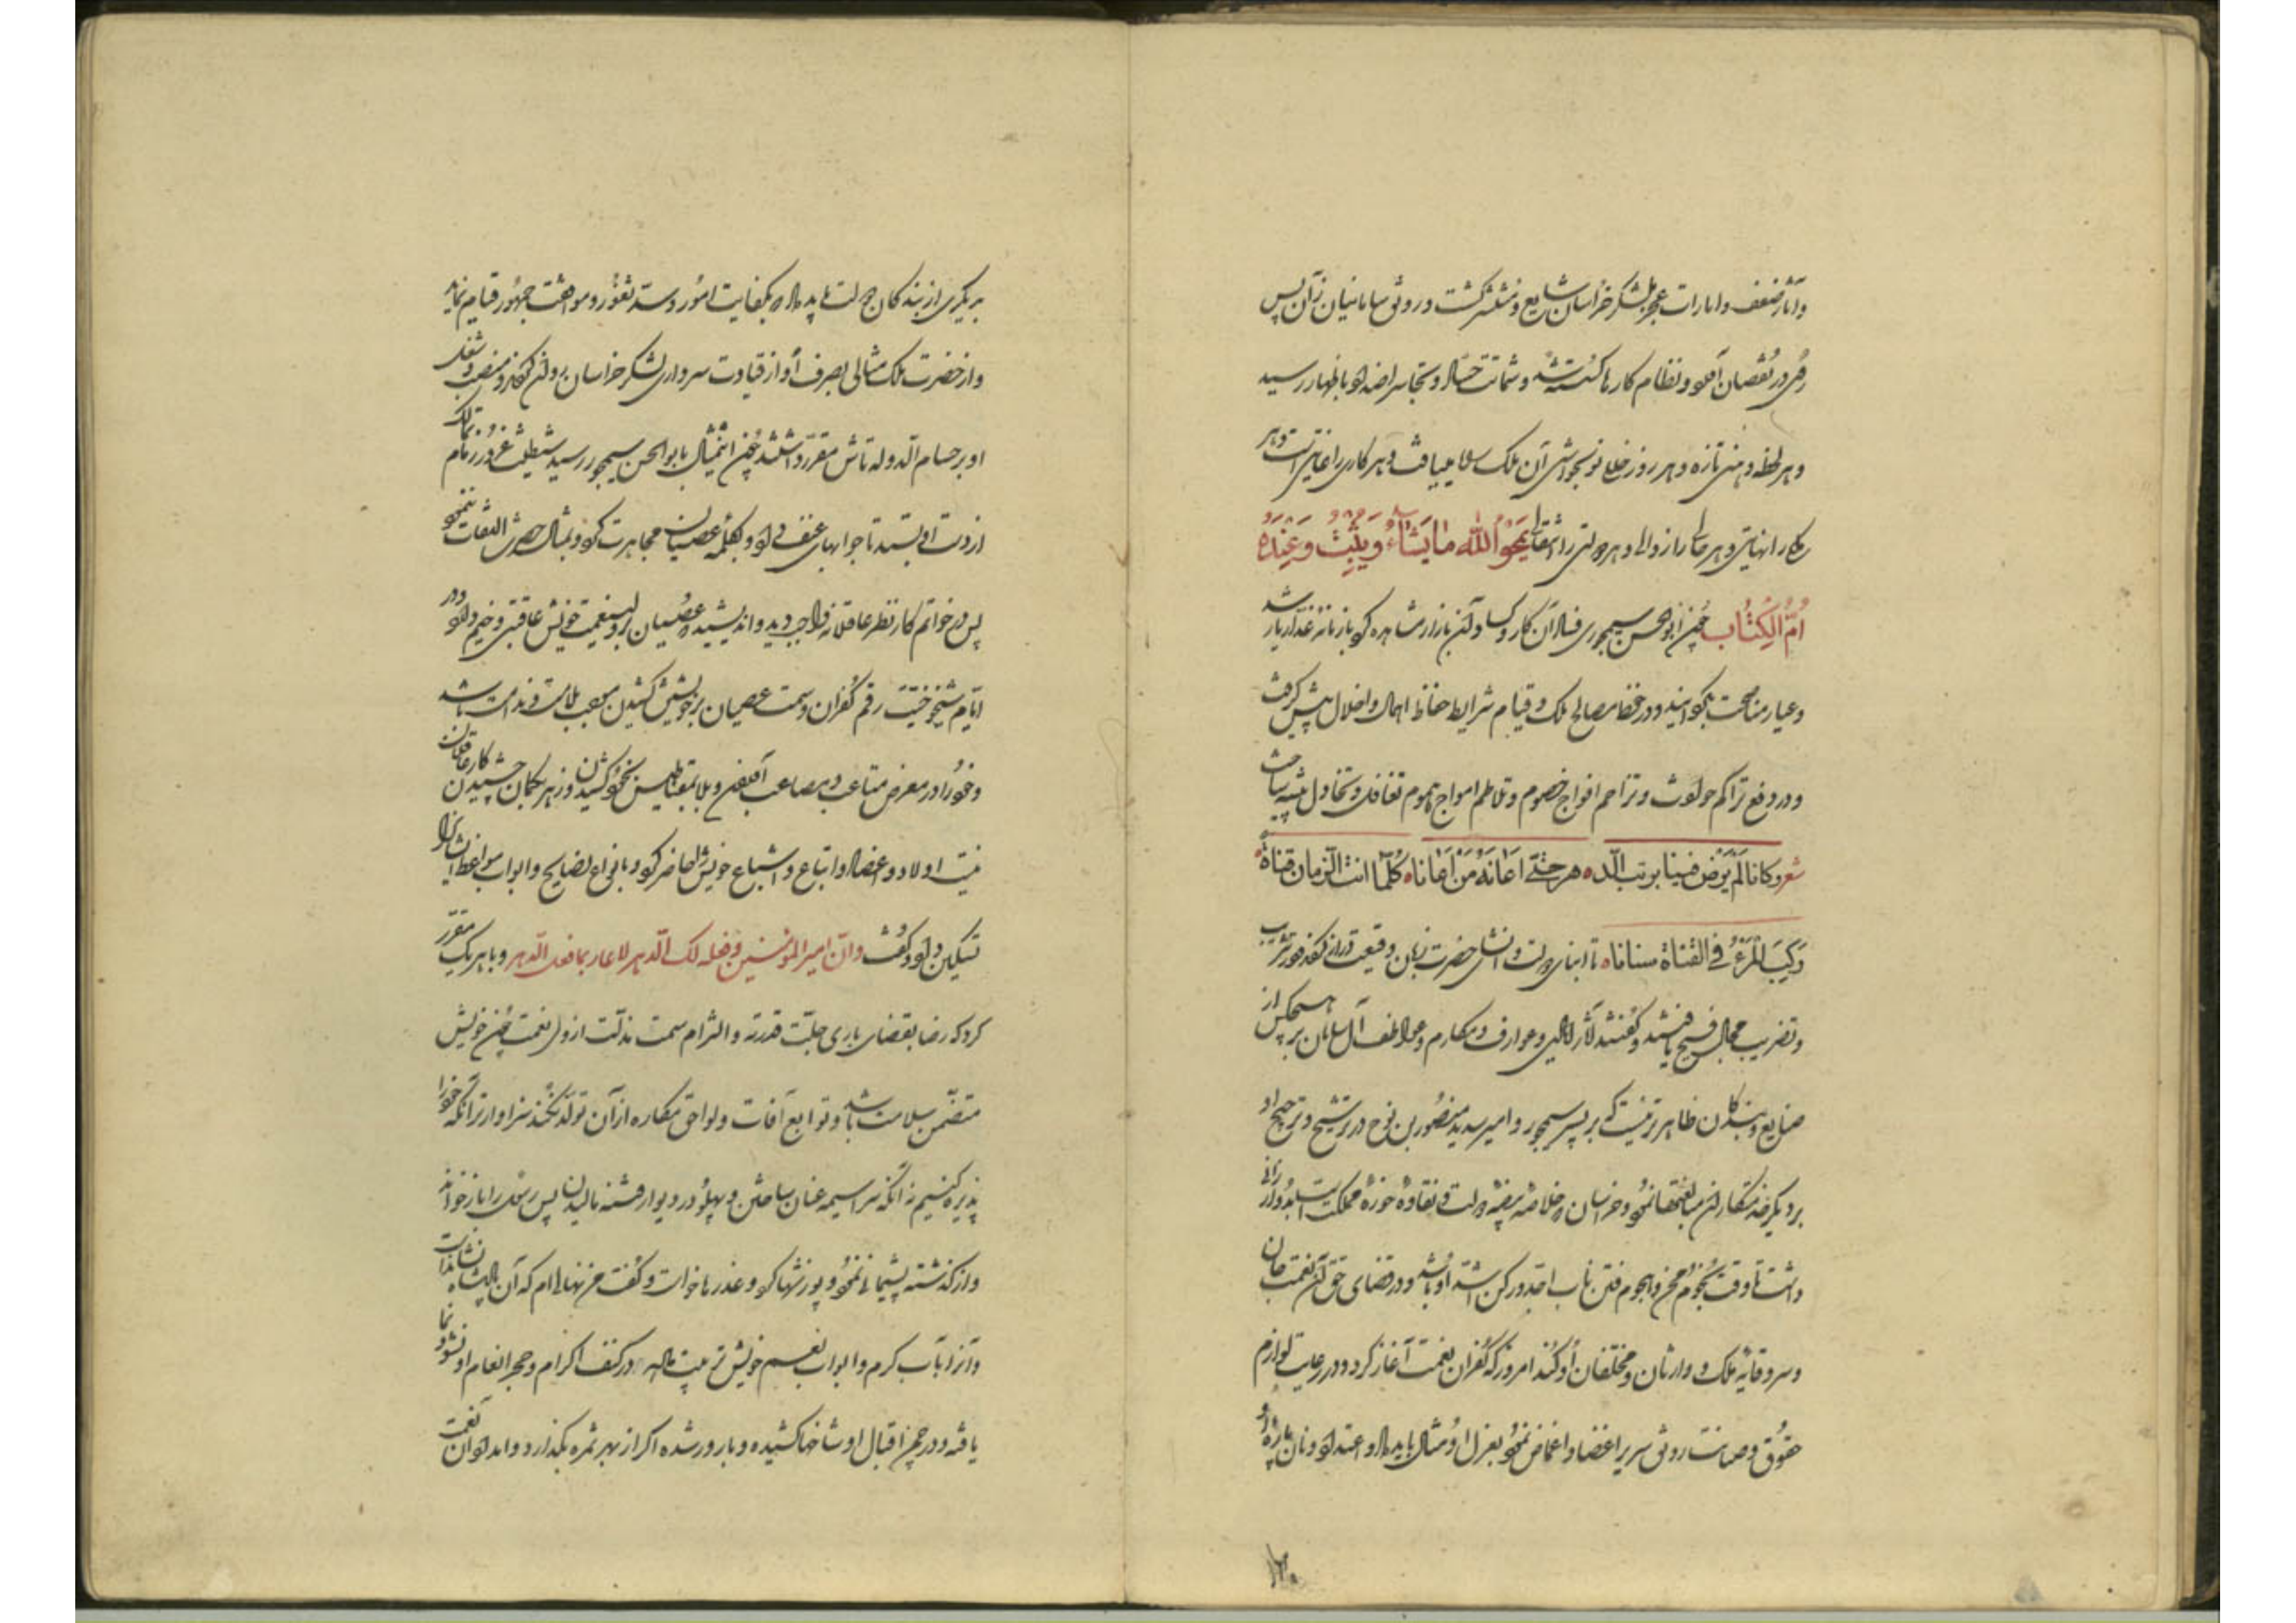 وآثار ضعف وامارات عجز بلشکر خراسان شایع و منتشر گشت و روی سامانیان از آن پس
رخی در نقصان آورد و نظام کارها گسسته شد و شماتت حساد و تجاسر اضداد باظهار رسید
و هر لحظه وهنی تازه و هر روز خللی نو بحواشی آن ملک راه می‌یافت و هر کاری را غایتی است و هر
را نهایتی و هر حالی را زوالی و هر دولتی را انتقالی یمحو الله ما یشاء و یثبت و عنده
ام الکتاب چون ابوالحسن سیمجوری فساد آن کار و کساد آن بازار مشاهده کرد با زمانه غدار یار شد
و عیار مناصحت بگردانید و در حفظ مصالح ملک و قیام شرایط حفاظ اهمال و اخلال پیش گرفت
و در دفع تراکم حوادث و تزاحم افواج خصوم و تلاطم امواج هموم تغافل و تخاذل پیشه ساخت
شعر و کانا لم یرض فینا بریب الدهر حتی اعانه من اعانا کلما انبت الزمان قناة
رکب المرء فی القناة سنانا تا ابنای دولت و حضرت زبان وقیعت دراز کردند و در تثریب
و تضریب مجال فسیح یافتند و گفتند آثار ایادی و عوارف و مکارم و عواطف آل سامان بر هیچکس از
صنایع و بندگان ظاهرتر نیست که بر پسر سیمجور و امیر سدید منصور بن نوح در ترشیح و ترجیح او
بر دیگر خدمتکاران مبالغتها نمود و خراسان که خلاصه بیضه دولت و نقاوه حوزه مملکت است بدو ارزانی
داشت تا وقت نجوم محن و هجوم فتن ناب احد و رکن اشد او باشد و در قضای حق آن نعمت جان
و سر وقایه ملک وارثان و مخلفان او کند امروز که کفران نعمت آغاز کرد و در رعایت لوازم
حقوق و صیانت رونق سریر اغضا و اغماض نمود بعزل او مثال باید داد و عنان پاره او
بدیگری از بندگان دولت باید داد که بکفایت امور و سد ثغور و مواهنت جمهور قیام نماید
و از حضرت ملک مثالی بصرف او از قیادت و سرداری لشکر خراسان روان کردند و منصب و شغل
او بر حسام الدوله تاش مقرر داشتند چون این مثال بابوالحسن سیمجور رسید شیطنت غرور زمام تمالک
از دست او بستد تا جوابهای عنیف داد و بکلمه عصیان مجاهرت کرد و بمثال حضرت التفات ننمود
پس در خواتم کار نظر عاقلانه واجب دید و اندیشید که عصیان ولی نعمت خویش عاقبتی وخیم دارد و در
ایام شیخوخیت رقم کفران و سمت عصیان بر خویش کشیدن موجب ملامت و ندامت باشد
و خود را در معرض متاعب و مصاعب آوردن و بلا بمقناطیس بخود کشیدن و زهر بگمان چشیدن کار عاقلان
نیست اولاد و اعضاد و اتباع و اشیاع خویش را حاضر کرد و بانواع نصایح و ابواب مواعظ ایشان را
تسکین داد و گفت وان امیر المؤمنین و فعله لک الدهر لا عار بما فعل الدهر و با هر یک مقرر
کرد که رضا بقضای باری جلت قدرته و التزام سمت مذلت از ولی نعمت چون خویش
متضمن سلامت باشد و توابع آفات و لواحق مکاره از آن تولد نکند سزاوارتر از آنکه خود را
پذیره کنیم از آنکه سراسیمه عنان ساختن و پهلو در دیوار فتنه مالیدن پس رسول را باز خواند
و از گذشته پشیمانی نمود و پوزشها کرد و عذرها خواست و گفت من نهالی‌ام که آن پادشاه نشانده است
و آن را بآب کرم و ابواب نعیم خویش تربیت داده و در کنف اکرام و حجر انعام او نشو و نما
یافته و در چمن اقبال او شاخها کشیده و بارور شده اگر از بهر ثمره بگذارد و امداد آن نعمت